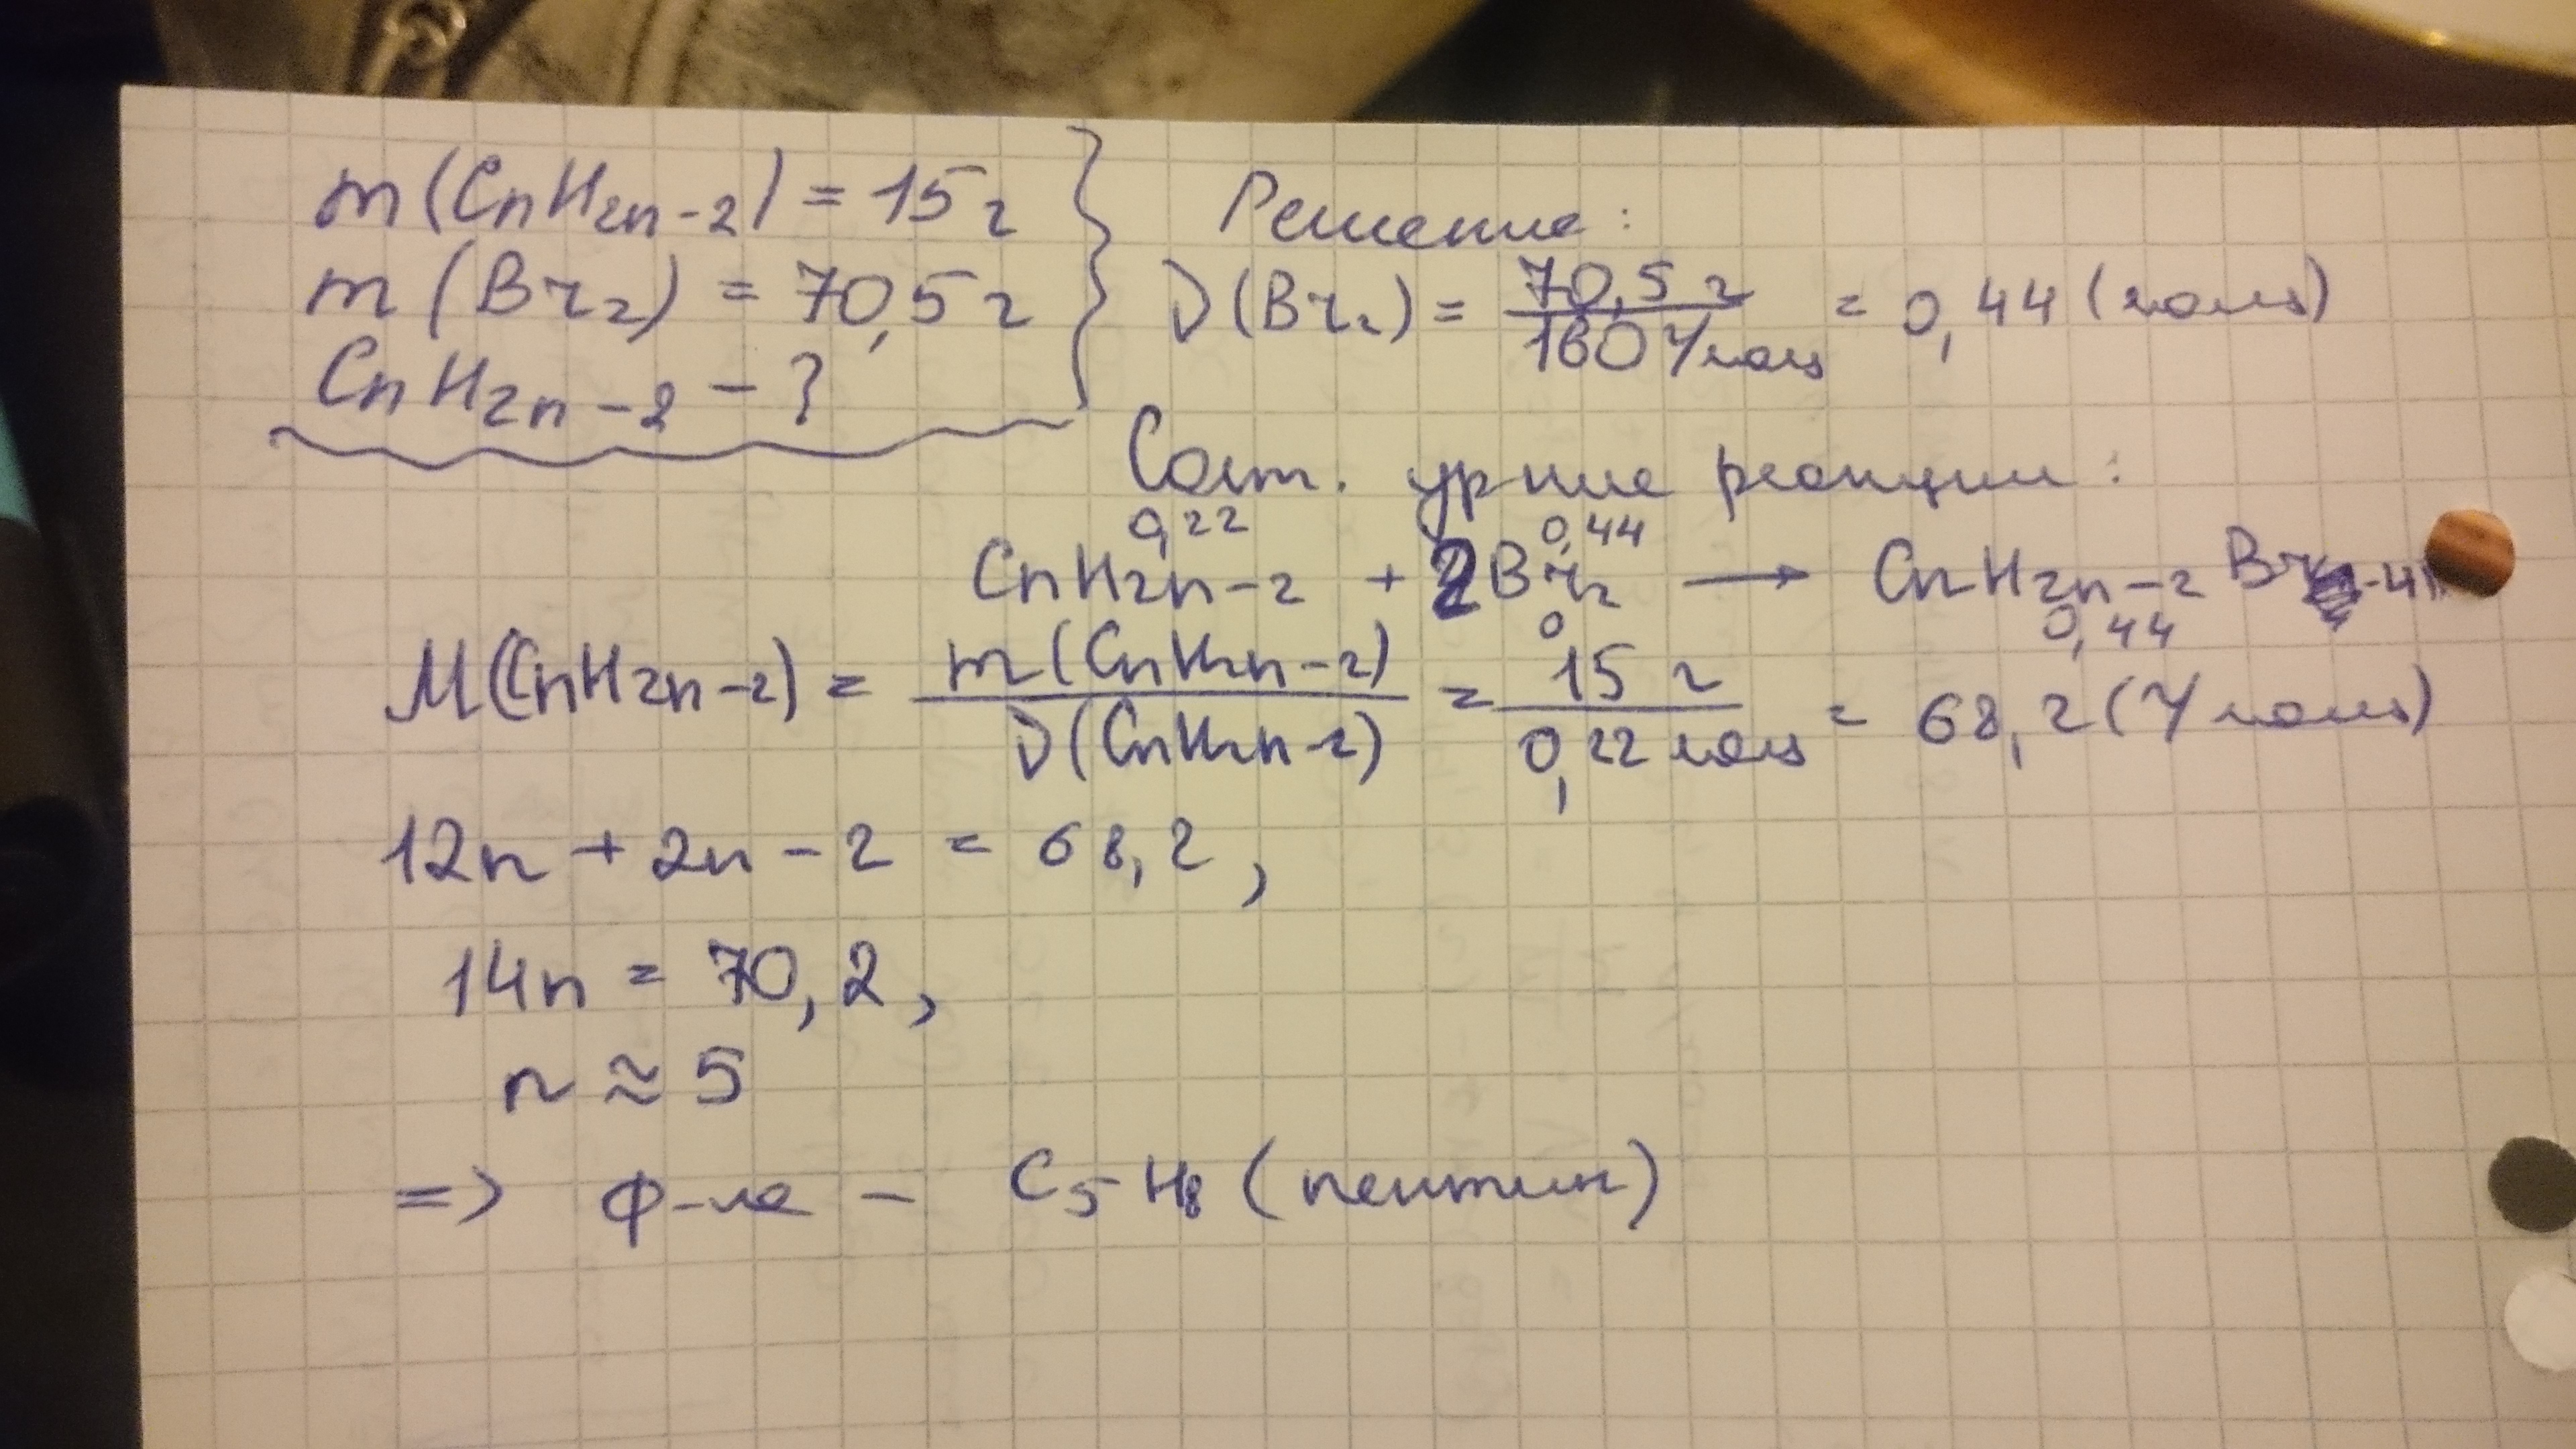 m(CnH2n-2) = 15 г
m(Br2) = 70,5 г
CnH2n-2 - ?
Решение:
ν(Br2) = 70,5 г / 160 г/моль = 0,44 (моль)
Сост. ур-ние реакции:
0,22 0,44
CnH2n-2 + 2Br2 → CnH2n-2 Br4
0 0,44
M(CnH2n-2) = m(CnH2n-2) / ν(CnH2n-2) = 15 г / 0,22 моль = 68,2 (г/моль)
12n + 2n - 2 = 68,2,
14n = 70,2,
n ≈ 5
=> ф-ла - C5H8 (пентин)